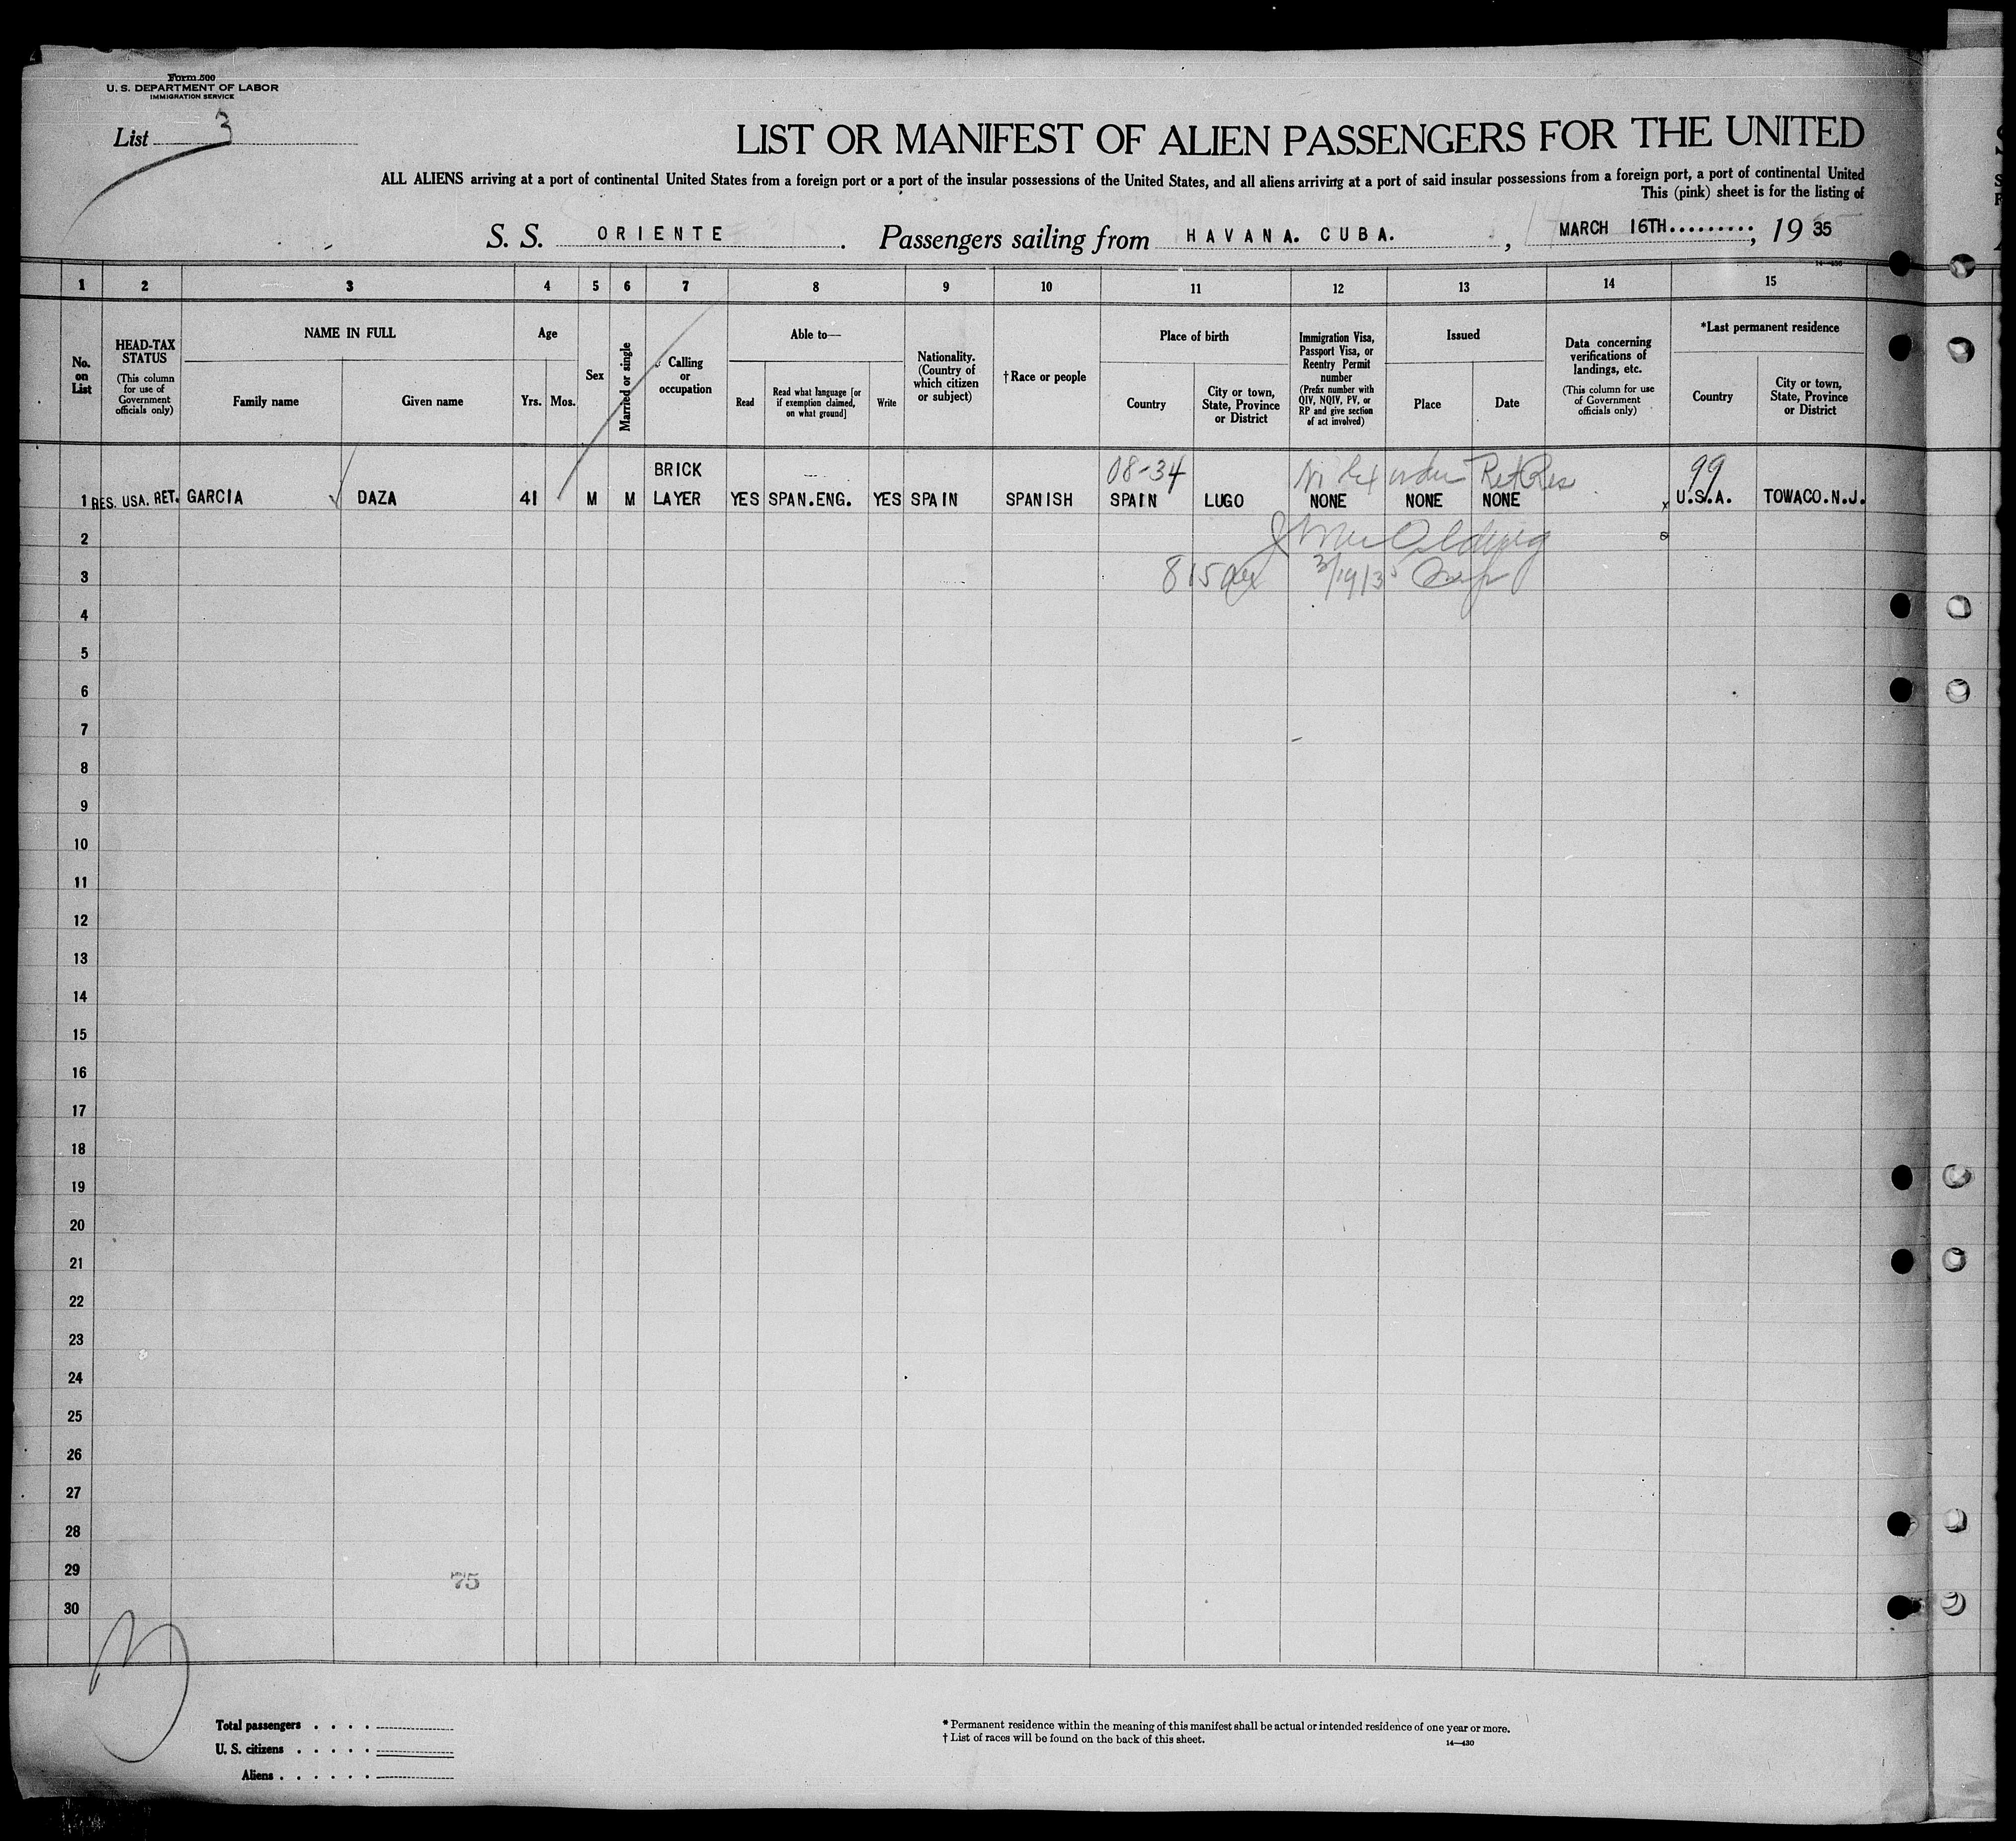 Form 500
U. S. DEPARTMENT OF LABOR
IMMIGRATION SERVICE
List 3
LIST OR MANIFEST OF ALIEN PASSENGERS FOR THE UNITED
ALL ALIENS arriving at a port of continental United States from a foreign port or a port of the insular possessions of the United States, and all aliens arriving at a port of said insular possessions from a foreign port, a port of continental United
This (pink) sheet is for the listing of
S. S. ORIENTE. Passengers sailing from HAVANA. CUBA., MARCH 16TH........., 19 35
14—430
1 2 3 4 5 6 7 8 9 10 11 12 13 14 15
No. on List
HEAD-TAX STATUS
(This column for use of Government officials only)
NAME IN FULL
Family name
Given name
Age
Yrs. Mos.
Sex
Married or single
Calling or occupation
Able to—
Read
Read what language [or if exemption claimed, on what ground]
Write
Nationality. (Country of which citizen or subject)
†Race or people
Place of birth
Country
City or town, State, Province or District
Immigration Visa, Passport Visa, or Reentry Permit number
(Prefix number with QIV, NQIV, PV, or RP and give section of act involved)
Issued
Place
Date
Data concerning verifications of landings, etc.
(This column for use of Government officials only)
*Last permanent residence
Country
City or town, State, Province or District
BRICK -- 08-34 Ret Res 99
1 RES. USA. RET. GARCIA DAZA 41 M M LAYER YES SPAN.ENG. YES SPAIN SPANISH SPAIN LUGO NONE NONE NONE x U.S.A. TOWACO.N.J.
2
3 815 3/19/35
4
5
6
7
8
9
10
11
12
13
14
15
16
17
18
19
20
21
22
23
24
25
26
27
28
29
75
30
Total passengers . . . .
U. S. citizens . . . . .
Aliens . . . . . .
* Permanent residence within the meaning of this manifest shall be actual or intended residence of one year or more.
† List of races will be found on the back of this sheet.
14—430